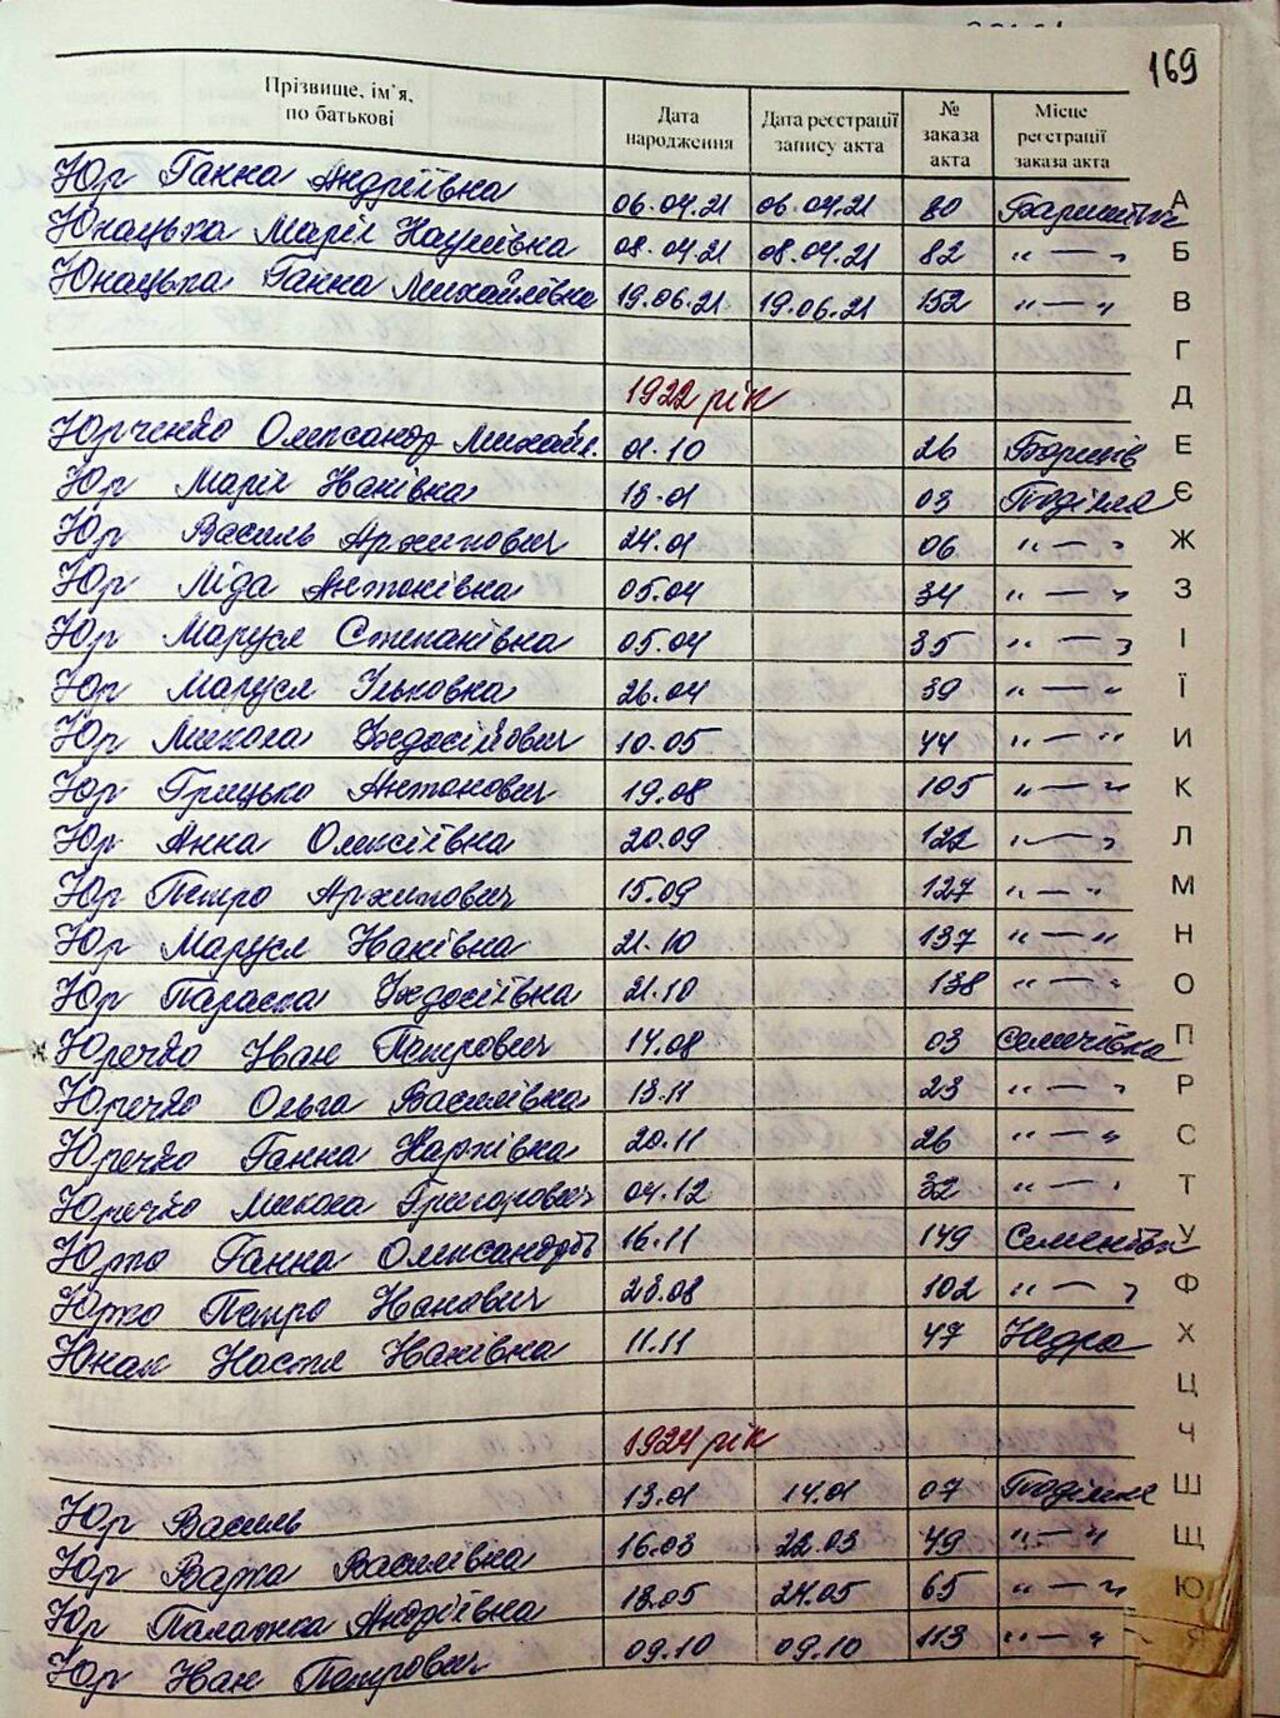 169
Прізвище, ім'я, по батькові Дата народження Дата реєстрації запису акта № заказа акта Місце реєстрації заказа акта
Юр Ганна Андріївна 06.04.21 06.04.21 80 А
Юнацька Марія Наумівна 08.04.21 08.04.21 82 " — " Б
Юнацька Ганна Михайлівна 19.06.21 19.06.21 152 " — " В
Г
1922 рік Д
Юрченко Олександр Михайл. 01.10 26 Борщів Е
Юр Марія Іванівна 13.01 03 Поділля Є
Юр Василь Архипович 24.01 06 " — " Ж
Юр Ліда Антонівна 05.04 34 " — " З
Юр Маруся Степанівна 05.04 35 " — " І
Юр Маруся Ільковна 26.04 39 " — " Ї
Юр Микола Федосійович 10.05 44 " — " И
Юр Грицько Антонович 19.08 105 " — " К
Юр Анна Олексіївна 20.09 122 " — " Л
Юр Петро Архипович 15.09 127 " — " М
Юр Маруся Іванівна 21.10 137 " — " Н
Юр Параска Федосіївна 21.10 138 " — " О
Юречко Іван Петрович 14.08 03 Семенівка П
Юречко Ольга Василівна 13.11 23 " — " Р
Юречко Ганна Карпівна 20.11 26 " — " С
Юречко Микола Григорович 04.12 32 " — " Т
Юрко Ганна Олександрів 16.11 149 У
Юрко Петро Іванович 23.08 102 " — " Ф
Юнак Настя Іванівна 11.11 47 Недра Х
Ц
1924 рік Ч
Юр Василь 13.01 14.01 07 Поділля Ш
Юр Варка Василівна 16.03 22.03 49 " — " Щ
Юр Палажка Андріївна 18.05 24.05 65 " — " Ю
Юр Іван Петрович 09.10 09.10 113 " — " Я